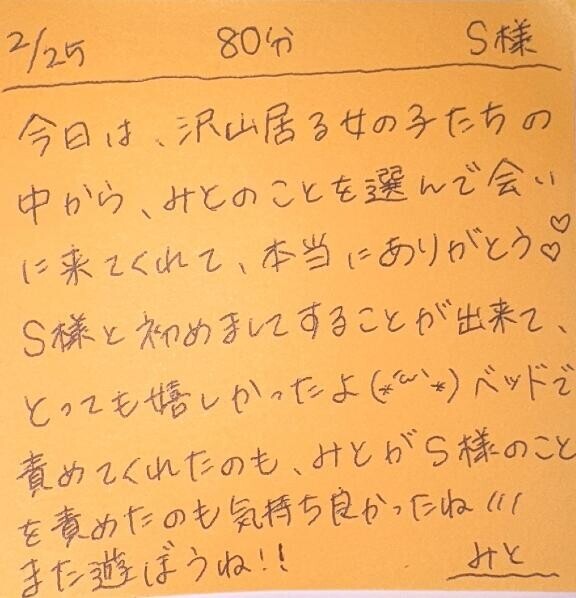 2/25 80分 S様
今日は、沢山居る女の子たちの
中から、みとのことを選んで会い
に来てくれて、本当にありがとう♡♡
S様と初めましてすることが出来て、
とっても嬉しかったよ(*´ω`*)ベッドで
責めてくれたのも、みとがS様のこと
を責めたのも気持ち良かったね///
また遊ぼうね!! みと